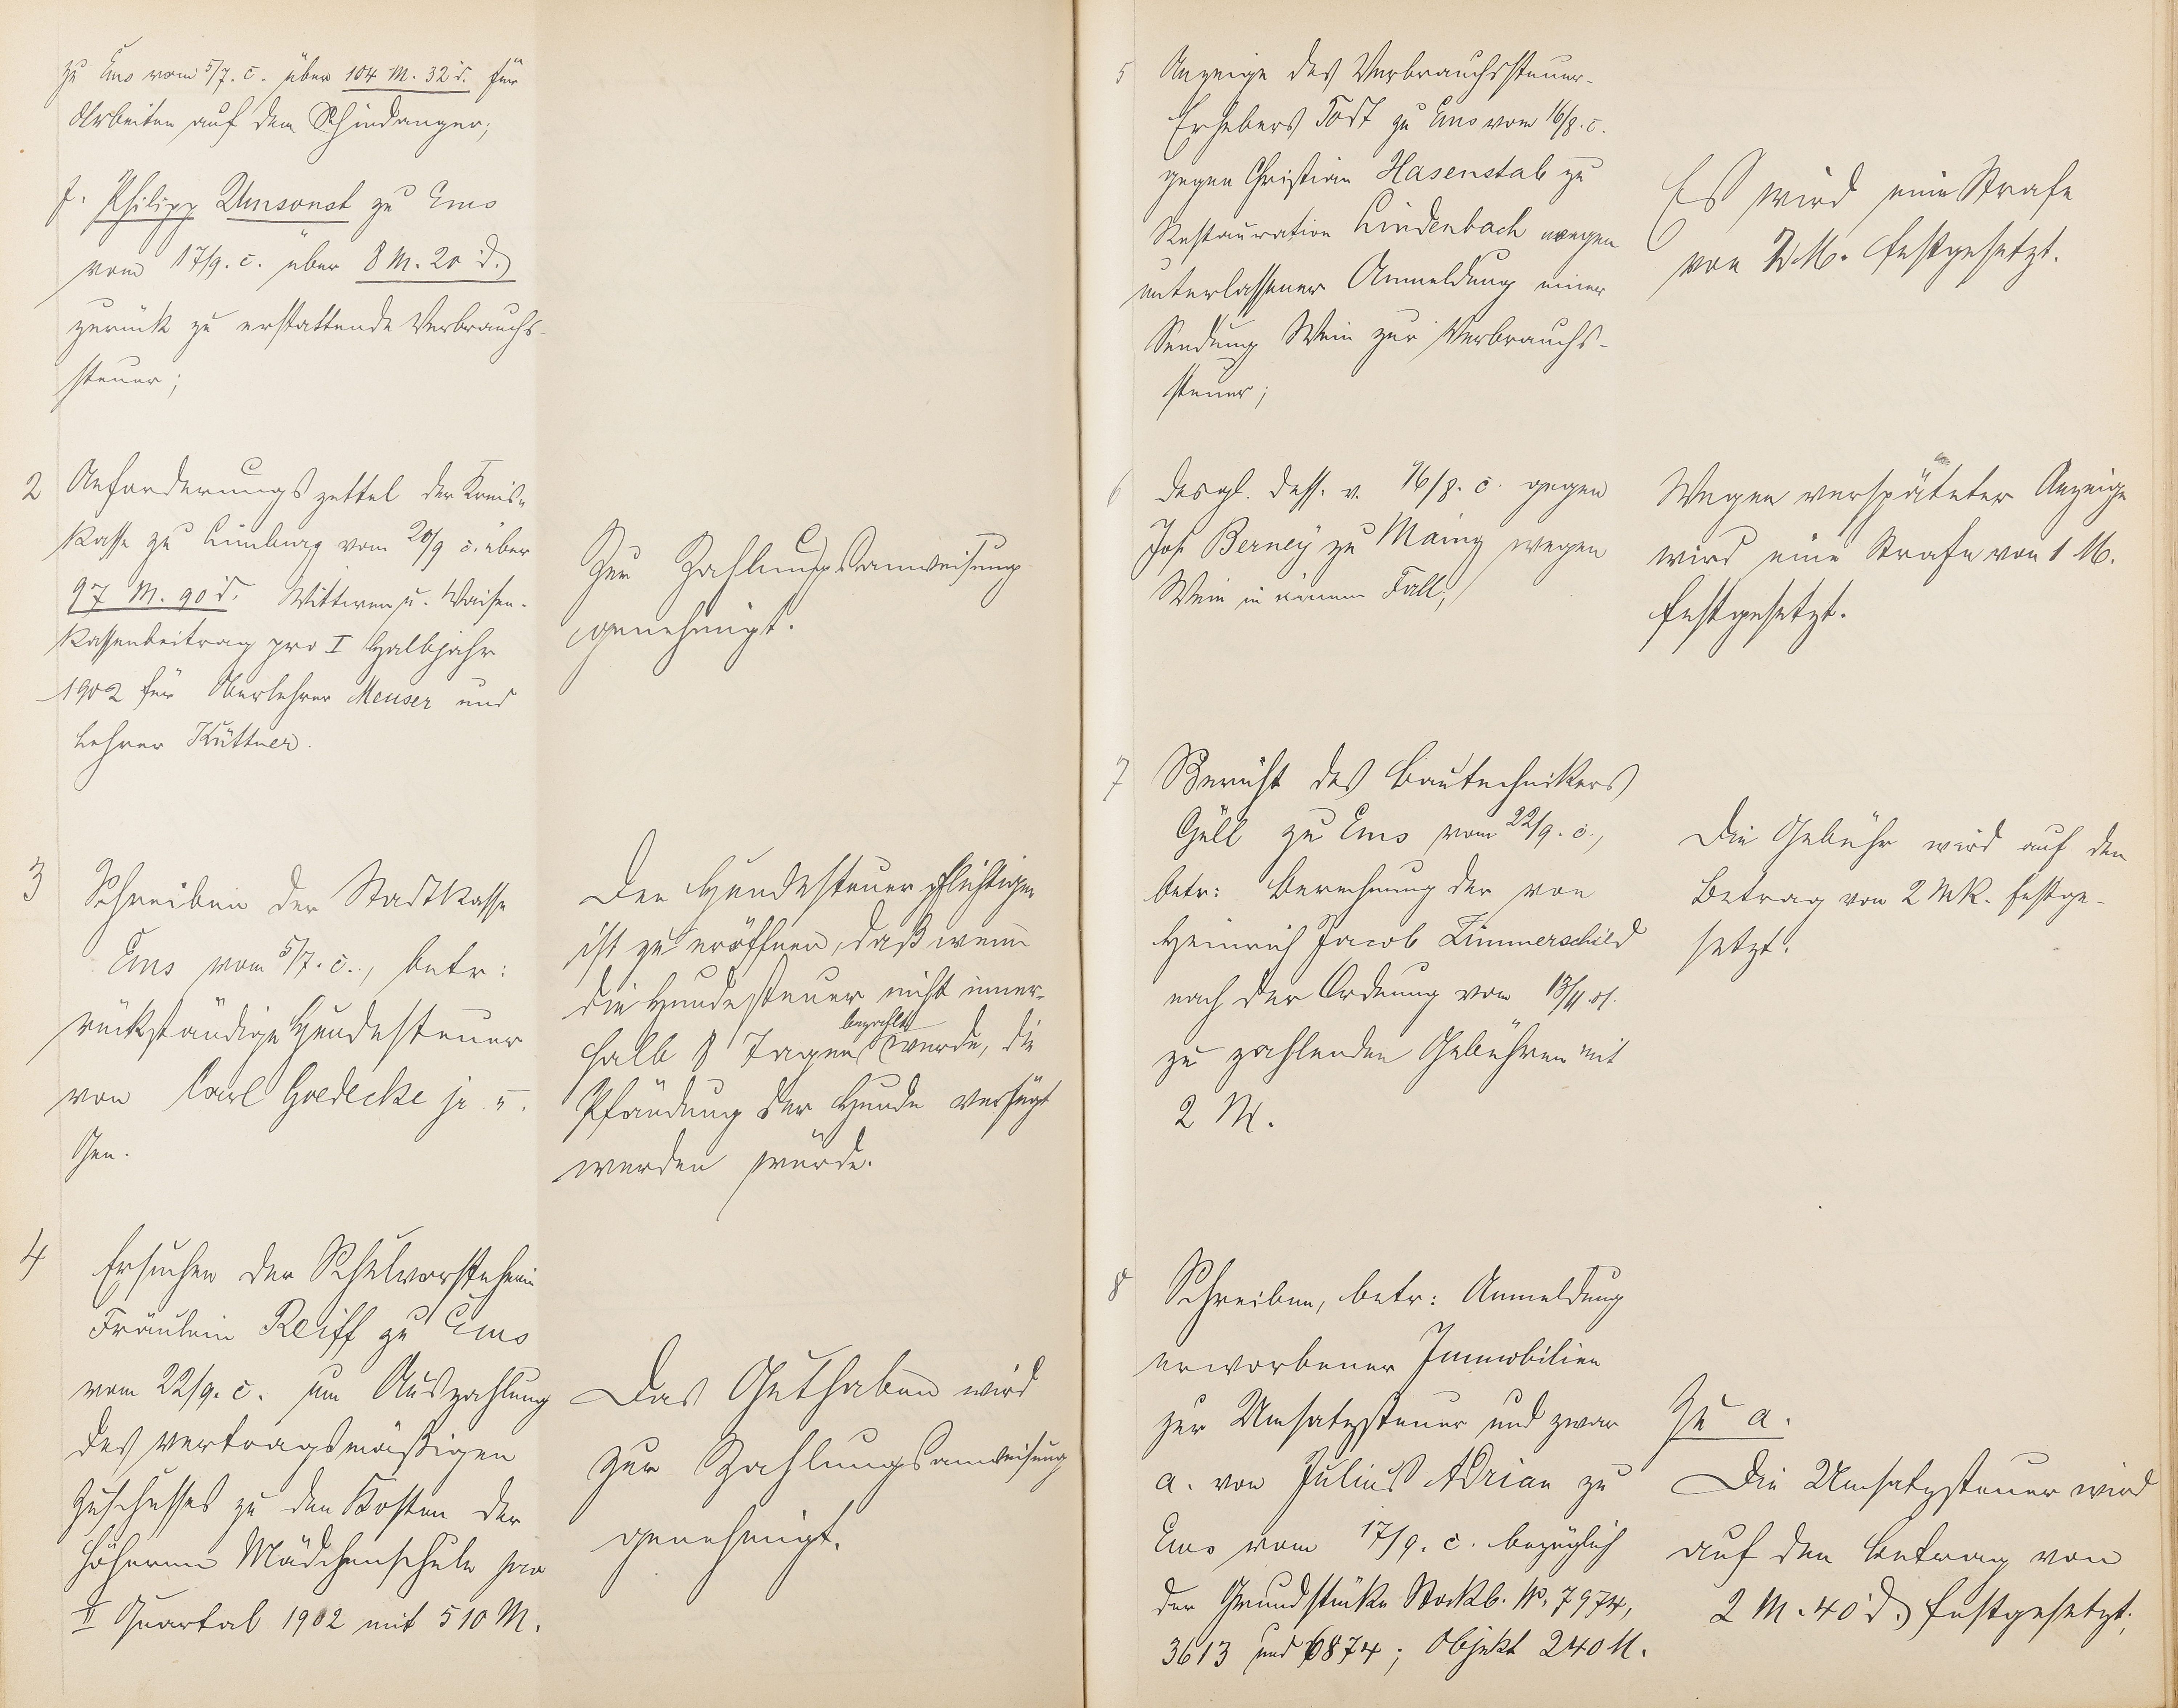 zu Ems vom 5/7. c. über 104 M. 32 d. für
Arbeiten auf dem Schindanger;
f. Philipp Umsonst zu Ems
vom 17/9. c. über 8 M. 20 d.
zurück zu erstattende Verbrauchs-
steuer;
2 Anforderungszettel der Kreis-
kasse zu Limburg vom 20/9 c. über
97 M. 90 d. Wittwen u. Waisen-
kassenbeitrag pro I Halbjahr
1902 für Oberlehrer Meuser und
Lehrer Küttner.
Zur Zahlungsanweisung
genehmigt.
3 Schreiben der Stadtkasse
Ems vom 5/7. c., betr:
rückständige Hundesteuer
von Carl Goedecke jr. u.
Gen.
Den Hundesteuerpflichtigen
ist zu eröffnen, daß wenn
die Hundesteuer nicht inner-
halb 8 Tagen bezahlt werde, die
Pfändung der Hunde verfügt
werden würde.
4 Ersuchen der Schulvorsteherin
Fräulein Reiff zu Ems
vom 22/9. c. um Auszahlung
des vertragsmäßigen
Zuschusses zu den Kosten der
höheren Mädchenschule pro
II Quartal 1902 mit 510 M.
Das Guthaben wird
zur Zahlungsanweisung
genehmigt.
5 Anzeige des Verbrauchssteuer-
Erhebers Todt zu Ems vom 16/8. c.
gegen Christian Hasenstab zu
Restauration Lindenbach wegen
unterlassener Anmeldung einer
Sendung Wein zur Verbrauchs-
steuer;
Es wird eine Strafe
von M. festgesetzt.
6 desgl. dess. v. 16/8. c. gegen
Jos. Berney zu Mainz wegen
Wein in einem Fall;
Wegen verspäteter Anzeige
wird eine Strafe von 1 M.
festgesetzt.
7 Bericht des Bautechnikers
Güll zu Ems vom 22/9. c.,
betr: Berechnung der von
Heinrich Jacob Zimmerschied
nach der Ordnung vom 13/11.01.
zu zahlenden Gebühren mit
2 M.
Die Gebühr wird auf den
Betrag von 2 Mk. festge-
setzt.
8 Schreiben, betr: Anmeldung
erworbener Immobilien
zur Umsatzsteuer und zwar
a. von Julius Adrian zu
Ems vom 17/9. c. bezüglich
der Grundstücke Stockb. No. 7974,
3613 und 6874; Objekt 240 M.
Zu a.
Die Umsatzsteuer wird
auf den Betrag von
2 M. 40 d. festgesetzt;